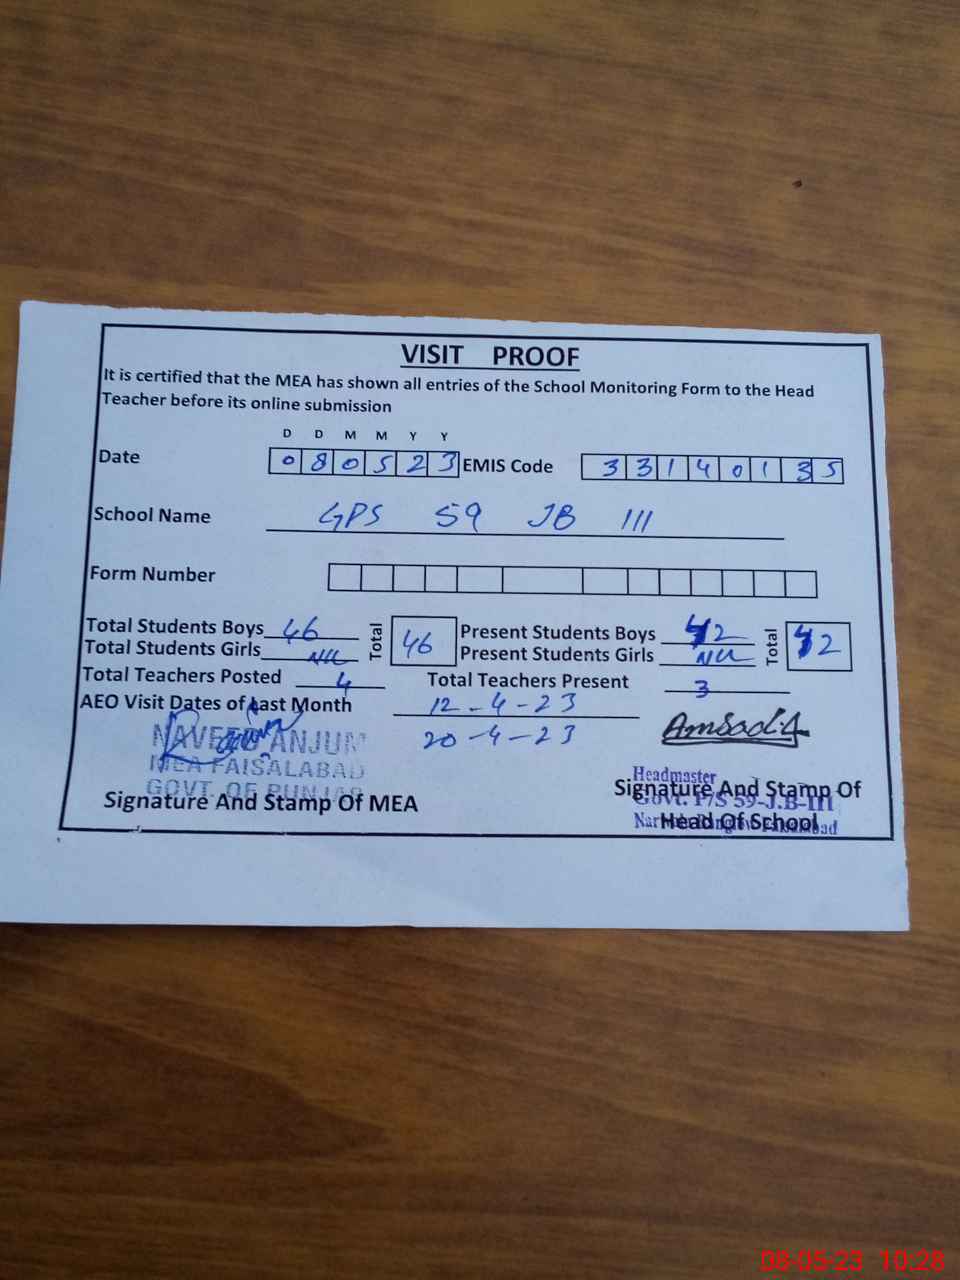 VISIT PROOF
It is certified that the MEA has shown all entries of the School Monitoring Form to the Head
Teacher before its online submission
D D M M Y Y
Date 080523 EMIS Code 33140135
School Name GPS 59 JB III
Form Number
Total Students Boys 46 Total 46 Present Students Boys 42 Total 42
Total Students Girls Nil Present Students Girls Nil
Total Teachers Posted 4 Total Teachers Present 3
AEO Visit Dates of Last Month 12-4-23
20-4-23
NAVEED ANJUM
MEA FAISALABAD
GOVT. OF PUNJAB
Signature And Stamp Of MEA
Headmaster
Signature And Stamp Of
Govt. P/S 59-J.B-III
Head Of School
Faisalabad
08-05-23 10:28